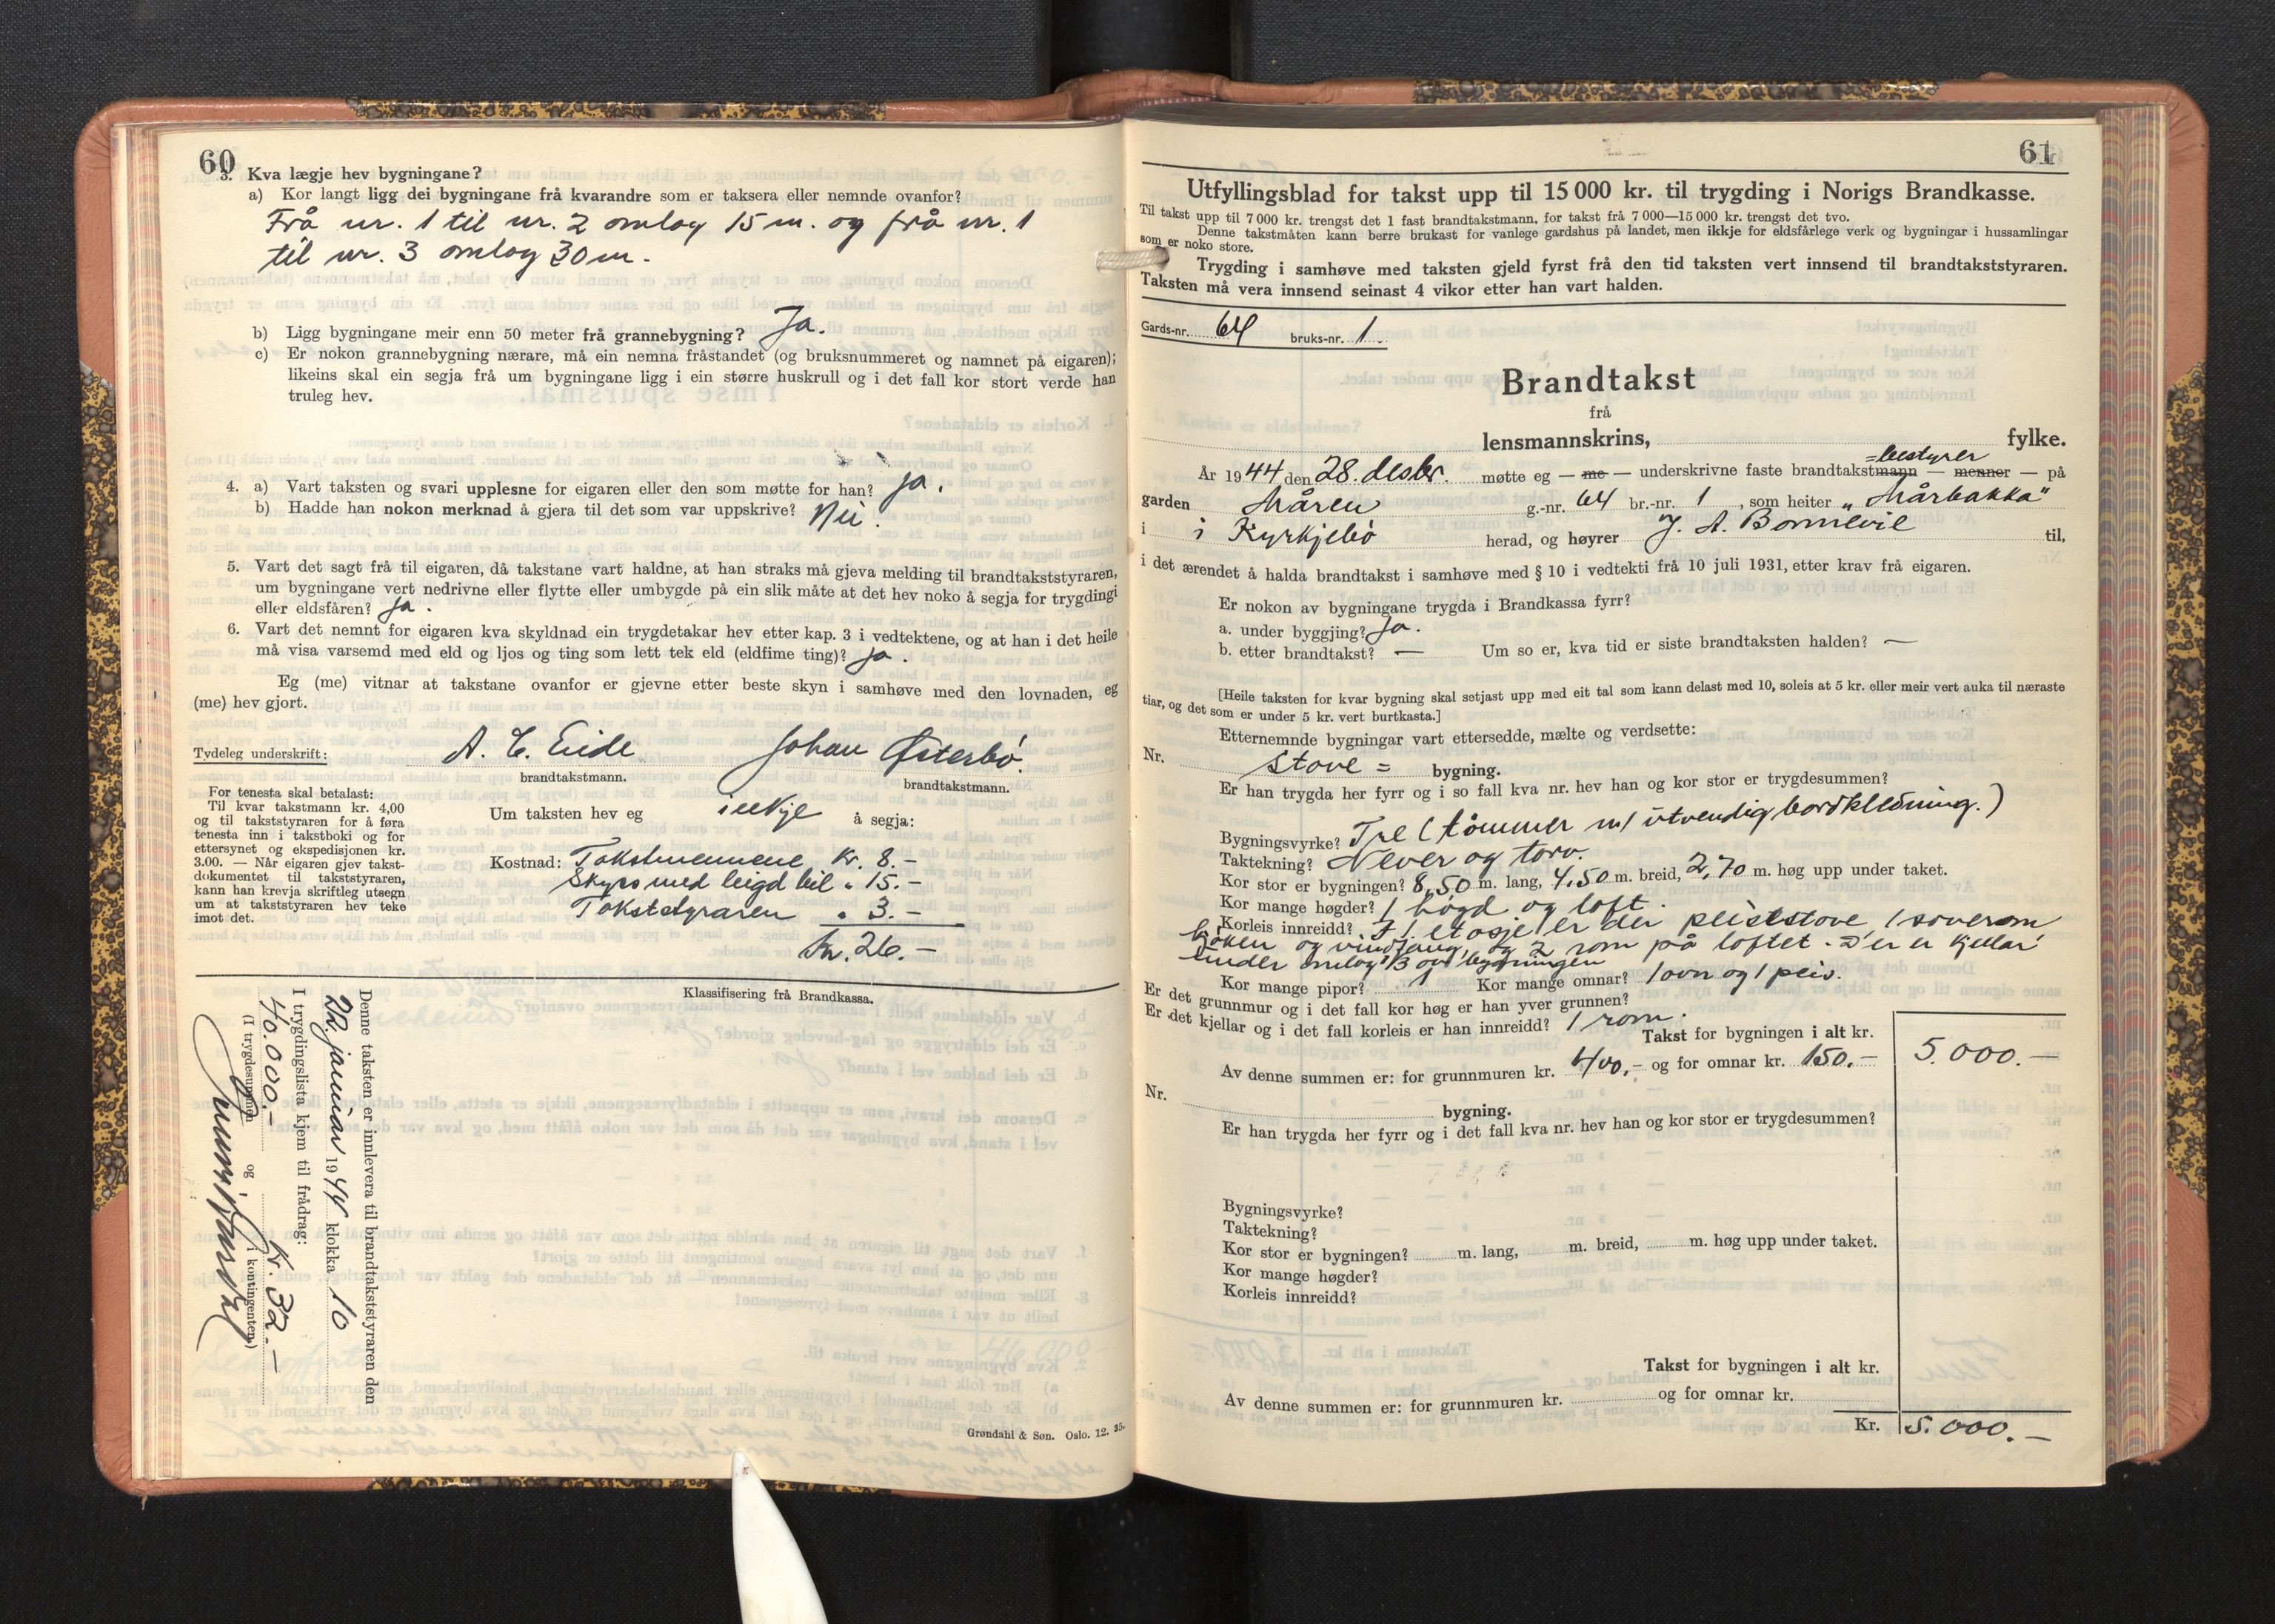 60
3. Kva lægje hev bygningane?
a) Kor langt ligg dei bygningane frå kvarandre som er taksera eller nemnde ovanfor?
Frå nr. 1 til nr. 2 omlag 15 m. og frå nr. 1
til nr. 3 omlag 30 m.
b) Ligg bygningane meir enn 50 meter frå grannebygning? Ja.
c) Er nokon grannebygning nærare, må ein nemna fråstandet (og bruksnummeret og namnet på eigaren);
likeins skal ein segja frå um bygningane ligg i ein større huskrull og i det fall kor stort verde han
truleg hev.
4. a) Vart taksten og svari upplesne for eigaren eller den som møtte for han? Ja.
b) Hadde han nokon merknad å gjera til det som var uppskrive? Nei.
5. Vart det sagt frå til eigaren, då takstane vart haldne, at han straks må gjeva melding til brandtakststyraren,
um bygningane vert nedrivne eller flytte eller umbygde på ein slik måte at det hev noko å segja for trygdingi
eller eldsfåren? Ja.
6. Vart det nemnt for eigaren kva skyldnad ein trygdetakar hev etter kap. 3 i vedtektene, og at han i det heile
må visa varsemd med eld og ljos og ting som lett tek eld (eldfime ting)? Ja.
Eg (me) vitnar at takstane ovanfor er gjevne etter beste skyn i samhøve med den lovnaden, eg
(me) hev gjort.
Tydeleg underskrift: A. C. Eide Johan Østerbø.
brandtakstmann. brandtakstmann.
For tenesta skal betalast:
Til kvar takstmann kr. 4,00
og til takststyraren for å føra
tenesta inn i takstboki og for
ettersynet og ekspedisjonen kr.
3.00. — Når eigaren gjev takst-
dokumentet til takststyraren,
kann han krevja skriftleg utsegn
um at takststyraren hev teke
imot det.
Um taksten hev eg ikkje å segja:
Kostnad: Takstmennene Kr. 8.-
Skyss med leigd bil " 15.-
Takststyraren " 3.-
Kr. 26.-
Klassifisering frå Brandkassa.
Denne taksten er innlevera til brandtakststyraren den
22. januar 1944 klokka 10
I trygdingslista kjem til frådrag:
40.000.- Kr. 32.-
(I trygdesummen og i kontingenten)
Grøndahl & Søn. Oslo. 12. 35.
61
Utfyllingsblad for takst upp til 15 000 kr. til trygding i Norigs Brandkasse.
Til takst upp til 7 000 kr. trengst det 1 fast brandtakstmann, for takst frå 7 000—15 000 kr. trengst det tvo.
Denne takstmåten kann berre brukast for vanlege gardshus på landet, men ikkje for eldsfårlege verk og bygningar i hussamlingar
som er noko store.
Trygding i samhøve med taksten gjeld fyrst frå den tid taksten vert innsend til brandtakststyraren.
Taksten må vera innsend seinast 4 vikor etter han vart halden.
Gards-nr. 64 bruks-nr. 1.
Brandtakst
frå
lensmannskrins, fylke.
=bestyrer
År 1944 den 28. desbr. møtte eg — me — underskrivne faste brandtakstmann — menner — på
garden Måren g.-nr. 64 br.-nr. 1, som heiter „Mårbakka"
i i Kyrkjebø herad, og høyrer J. A. Bonnevie til,
i det ærendet å halda brandtakst i samhøve med § 10 i vedtekti frå 10 juli 1931, etter krav frå eigaren.
Er nokon av bygningane trygda i Brandkassa fyrr?
a. under byggjing? Ja.
b. etter brandtakst? — Um so er, kva tid er siste brandtaksten halden? —
[Heile taksten for kvar bygning skal setjast upp med eit tal som kann delast med 10, soleis at 5 kr. eller meir vert auka til næraste
tiar, og det som er under 5 kr. vert burtkasta.]
Etternemnde bygningar vart ettersedde, mælte og verdsette:
Nr. Stove = bygning.
Er han trygda her fyrr og i so fall kva nr. hev han og kor stor er trygdesummen?
Bygningsvyrke? Tre (tømmer m/ utvendig bordkledning.)
Taktekning? Never og torv.
Kor stor er bygningen? 8,50 m. lang, 4,50 m. breid, 2,70 m. høg upp under taket.
Kor mange høgder? 1 høgd og loft.
Korleis innreidd? I 1. etasje er der peisestove 1 soverom
kjøken og vindfang, og 2 rom på loftet. Der er kjellar
under omlag 1/3 av bygningen
Kor mange pipor? 1 Kor mange omnar? 1 ovn og 1 peis.
Er det grunnmur og i det fall kor høg er han yver grunnen?
Er det kjellar og i det fall korleis er han innreidd? 1 rom.
Takst for bygningen i alt kr. 5.000.—
Av denne summen er: for grunnmuren kr. 400,- og for omnar kr. 150.—
Nr. bygning.
Er han trygda her fyrr og i det fall kva nr. hev han og kor stor er trygdesummen?
Bygningsvyrke?
Taktekning?
Kor stor er bygningen? m. lang, m. breid, m. høg upp under taket.
Kor mange høgder?
Korleis innreidd?
Takst for bygningen i alt kr.
Av denne summen er: for grunnmuren kr. og for omnar kr.
Kr. 5.000.—